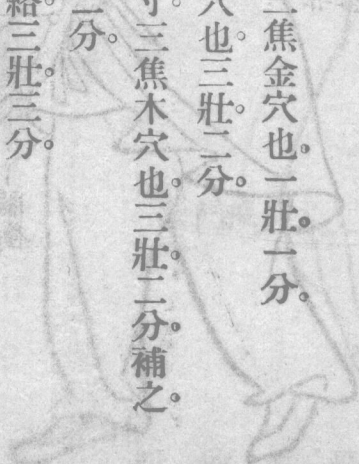 焦金穴也。一壯一分。
穴也。三壯二分。
三焦木穴也。三壯二分。補之。
分。
絡。三壯三分。